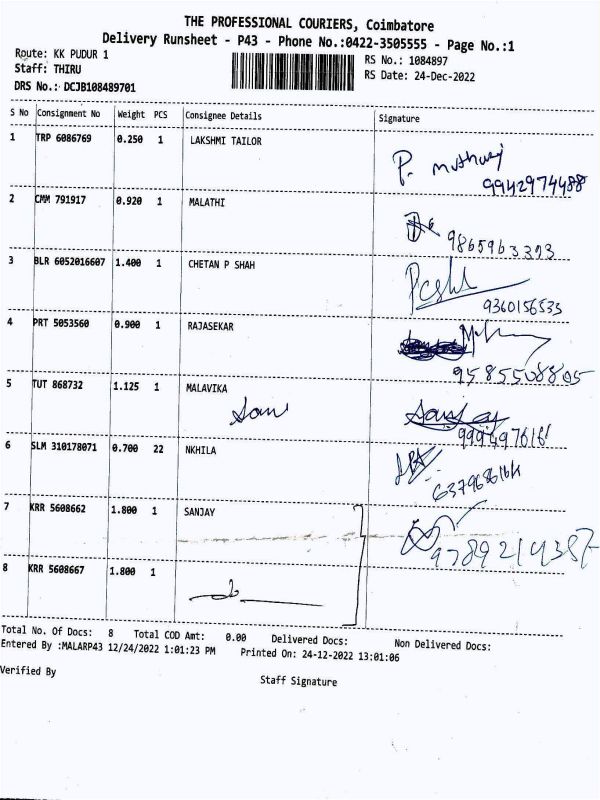 THE PROFESSIONAL COURIERS, Coimbatore
Delivery Runsheet - P43 - Phone No.:0422-3505555 - Page No.:1
Route: KK PUDUR 1
RS No.: 1084897
Staff: THIRU
RS Date: 24-Dec-2022
DRS No.: DCJB108489701
S No Consignment No Weight PCS Consignee Details Signature
1 TRP 6086769 0.250 1 LAKSHMI TAILOR
9942974488
2 CMM 791917 0.920 1 MALATHI
9865963393
3 BLR 6052016607 1.400 1 CHETAN P SHAH
9360156533
4 PRT 5053560 0.900 1 RAJASEKAR
9585508805
5 TUT 868732 1.125 1 MALAVIKA
6 SLM 310178071 0.700 22 NKHILA
7 KRR 5608662 1.800 1 SANJAY
8 KRR 5608667 1.800 1
Total No. Of Docs: 8 Total COD Amt: 0.00 Delivered Docs: Non Delivered Docs:
Entered By :MALARP43 12/24/2022 1:01:23 PM Printed On: 24-12-2022 13:01:06
Verified By
Staff Signature